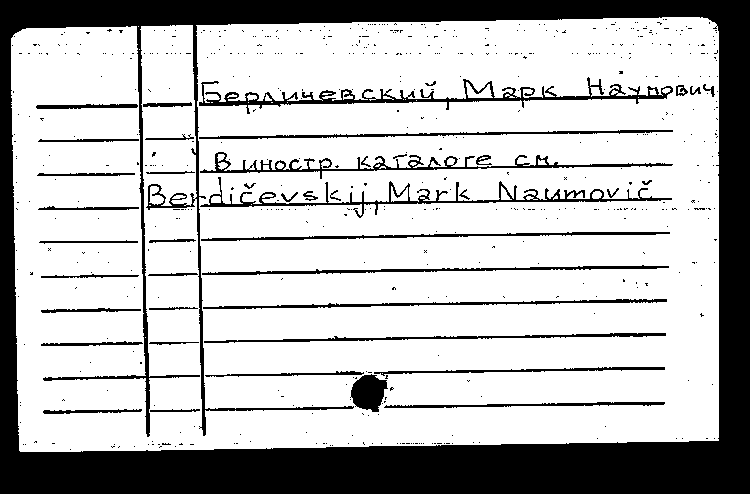 Бердичевский, Марк Наумович
В иностр. каталоге см.
Berdičevskij, Mark Naumovič